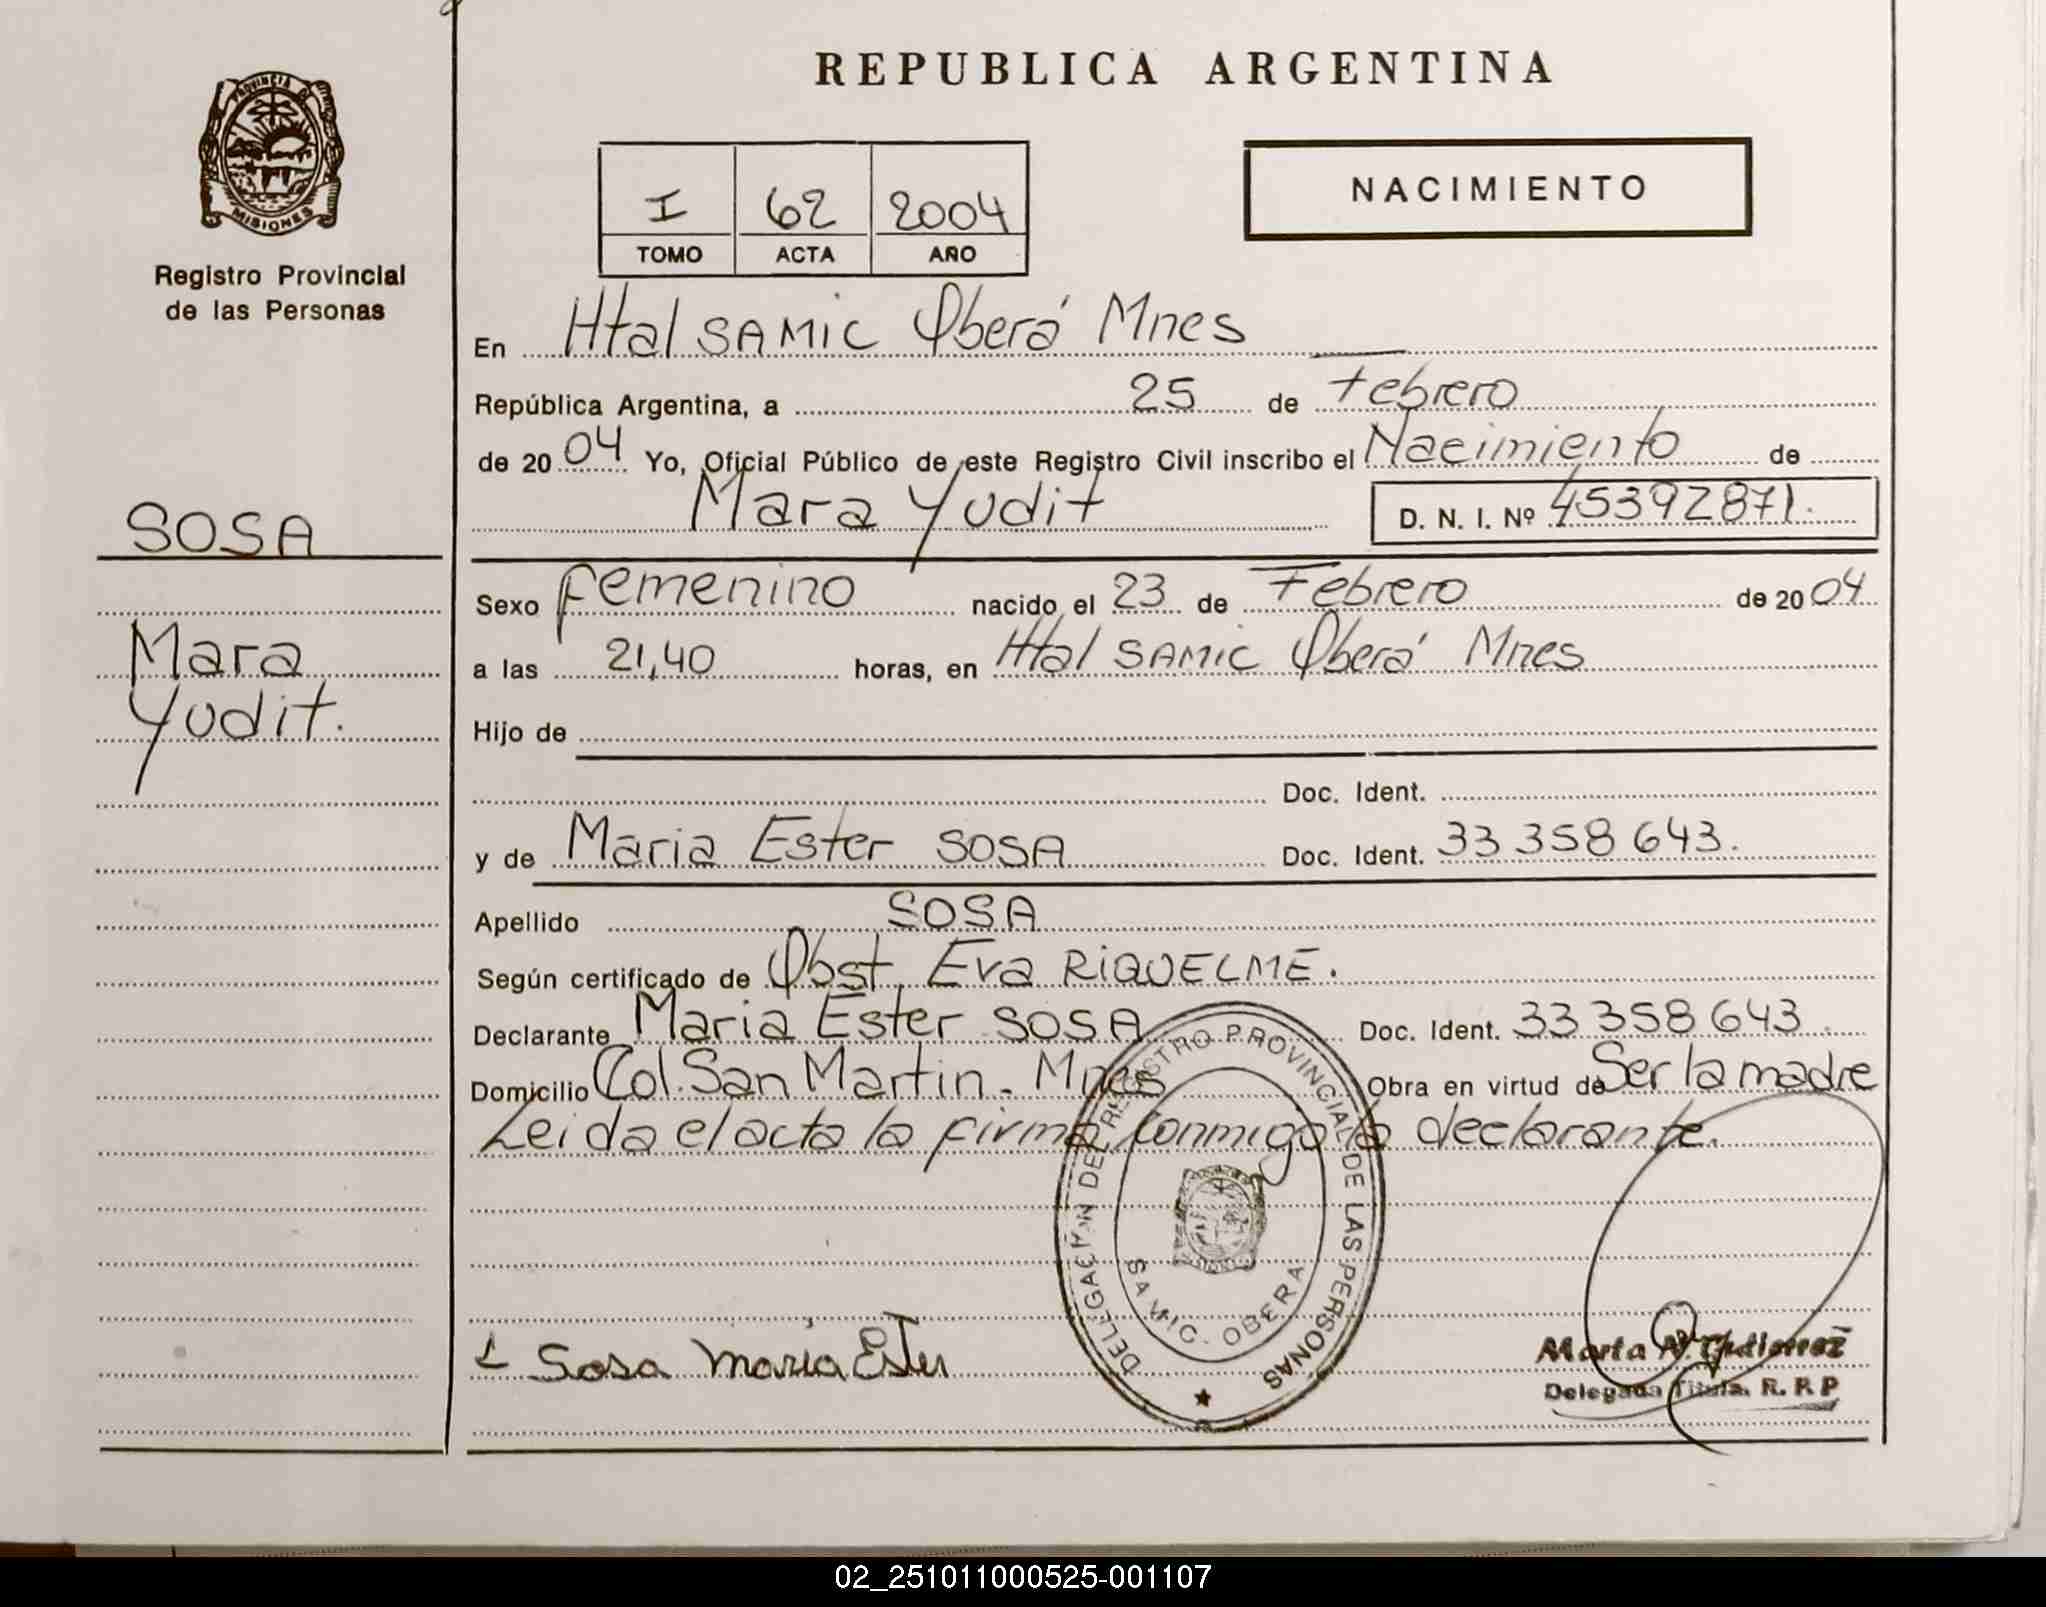 REPUBLICA ARGENTINA
PROVINCIA DE
MISIONES
Registro Provincial
de las Personas
I 62 2004
TOMO ACTA AÑO
NACIMIENTO
En Htal SAMIC Oberá Mnes
República Argentina, a 25 de Febrero
de 2004 Yo, Oficial Público de este Registro Civil inscribo el Nacimiento de
Mara Yudit D. N. I. Nº 45392871.
SOSA
Mara
Yudit.
Sexo femenino nacido el 23 de Febrero de 2004
a las 21,40 horas, en Htal SAMIC Oberá Mnes
Hijo de
Doc. Ident.
y de Maria Ester SOSA Doc. Ident. 33 358 643.
Apellido SOSA
Según certificado de Obst. Eva RiQUELME.
Declarante Maria Ester SOSA Doc. Ident. 33 358 643.
Domicilio Col. San Martin - Mnes Obra en virtud de Ser la madre
Leida el acta la firma conmigo la declarante.
DELEGACION DEL REGISTRO PROVINCIAL DE LAS PERSONAS
SAMIC - OBERA
Sosa Maria Ester
Marta A. Gutierrez
Delegada Titular R. R. P
02_251011000525-001107